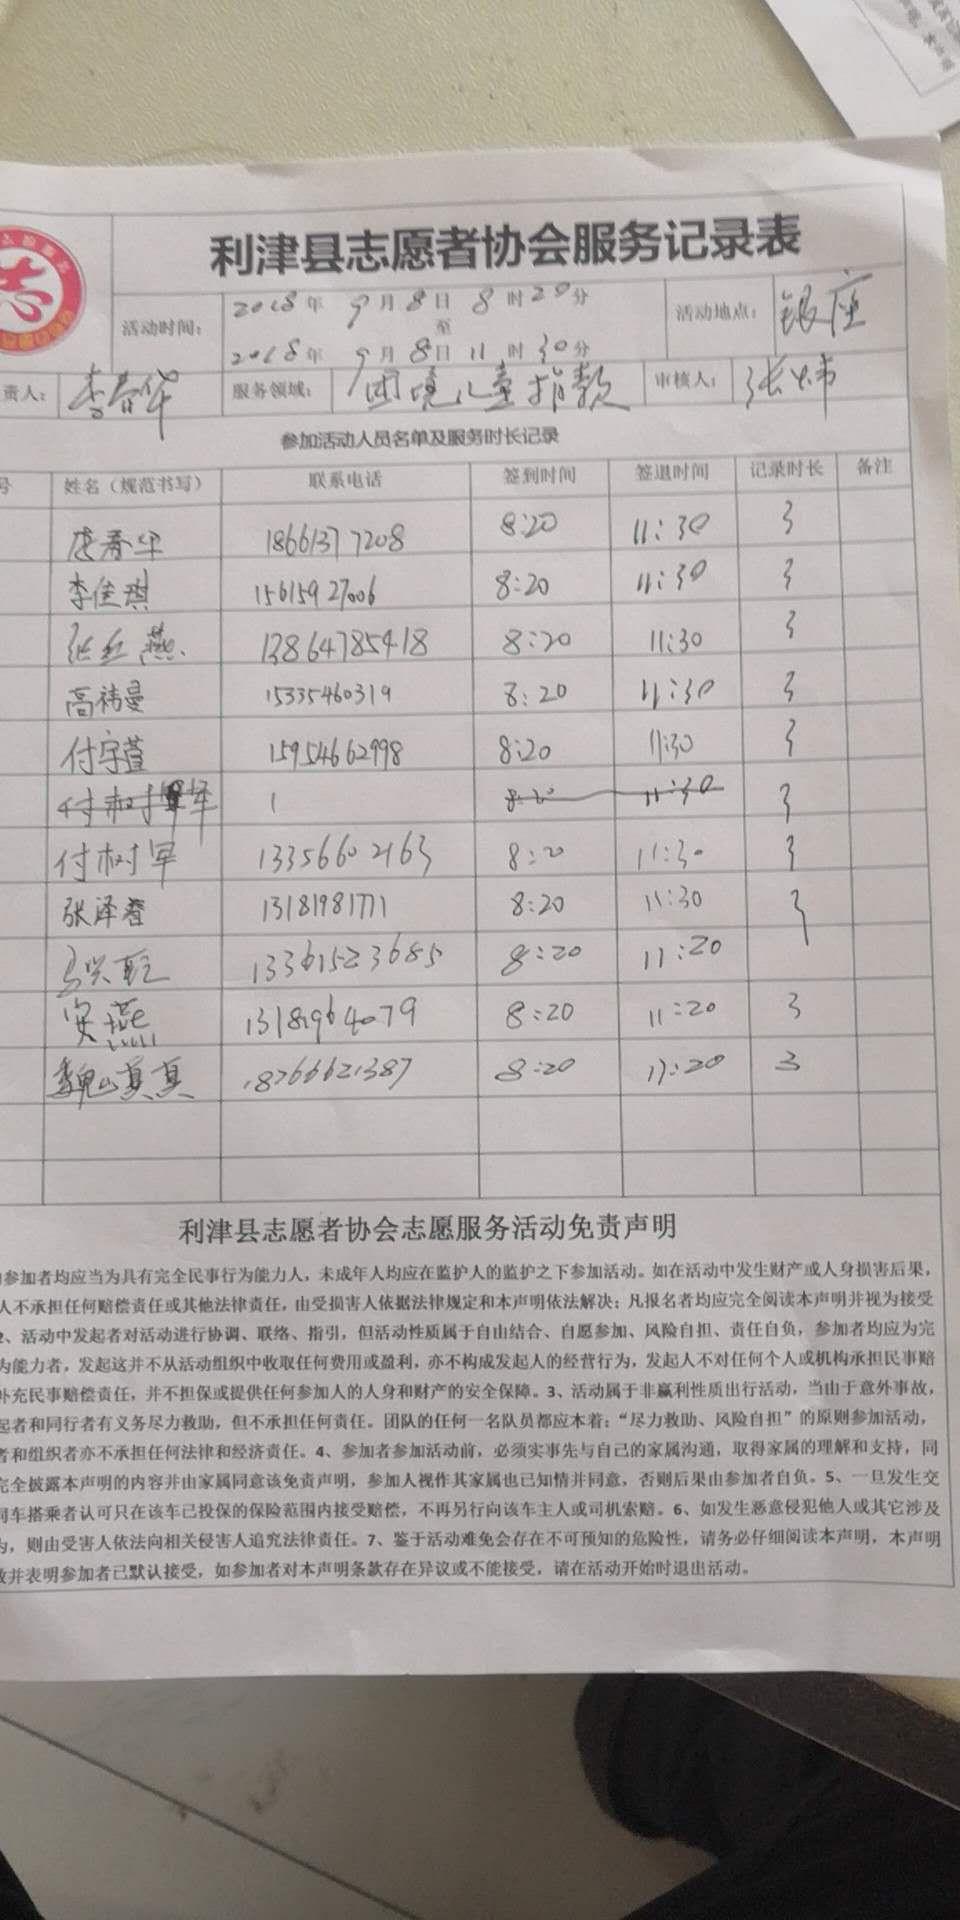 利津县志愿者协会服务记录表
活动时间: 2018年 9月8日 8时20分 至 2018年 9月8日 11时30分 活动地点: 银座
责人: 李春华 服务领域: 困境儿童捐款 审核人: 张炜
参加活动人员名单及服务时长记录
号 姓名（规范书写） 联系电话 签到时间 签退时间 记录时长 备注
春华 18661377208 8:20 11:30 3
李佳琪 15615927006 8:20 11:30 3
张红燕 13864785418 8:20 11:30 3
高祎曼 15335460319 8:20 11:30 3
付宇萱 15954662998 8:20 11:30 3
付树军 1 8:20 11:30 3
付树军 13356602163 8:20 11:30 3
张泽睿 13181981771 8:20 11:30 3
13361523685 8:20 11:20
燕 13181964079 8:20 11:20 3
魏真真 18266621387 8:20 11:20 3
利津县志愿者协会志愿服务活动免责声明
参加者均应当为具有完全民事行为能力人，未成年人均应在监护人的监护之下参加活动。如在活动中发生财产或人身损害后果，
人不承担任何赔偿责任或其他法律责任，由受损害人依据法律规定和本声明依法解决；凡报名者均应完全阅读本声明并视为接受
2、活动中发起者对活动进行协调、联络、指引，但活动性质属于自由结合、自愿参加、风险自担、责任自负，参加者均应为完
为能力者，发起这并不从活动组织中收取任何费用或盈利，亦不构成发起人的经营行为，发起人不对任何个人或机构承担民事赔
补充民事赔偿责任，并不担保或提供任何参加人的人身和财产的安全保障。3、活动属于非赢利性质出行活动，当由于意外事故，
起者和同行者有义务尽力救助，但不承担任何责任。团队的任何一名队员都应本着：“尽力救助、风险自担”的原则参加活动，
者和组织者亦不承担任何法律和经济责任。4、参加者参加活动前，必须实事先与自己的家属沟通，取得家属的理解和支持，同
完全披露本声明的内容并由家属同意该免责声明，参加人视作其家属也已知情并同意，否则后果由参加者自负。5、一旦发生交
同车搭乘者认可只在该车已投保的保险范围内接受赔偿，不再另行向该车主人或司机索赔。6、如发生恶意侵犯他人或其它涉及
为，则由受害人依法向相关侵害人追究法律责任。7、鉴于活动难免会存在不可预知的危险性，请务必仔细阅读本声明，本声明
效并表明参加者已默认接受，如参加者对本声明条款存在异议或不能接受，请在活动开始时退出活动。